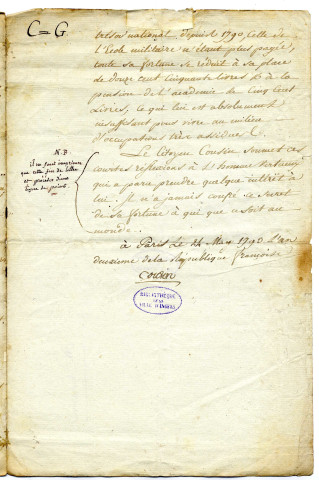 C = G
trésor national depuis 1790, celle de
l'Ecole militaire n'étant plus payée,
toute sa fortune se réduit à sa place
de douze cent cinquante livres & à la
pension de l'académie de cinq cent
Livres, ce qui lui est absolument
insuffisant pour vivre au milieu
d'occupations très assidues C.
Le Citoyen Cousin soumet ces
courtes réflexions à l'homme vertueux
qui a paru prendre quelque intérêt à
lui. Il n'a jamais confié ce secret
de sa fortune à qui que ce soit au
monde.
N.B
il ne faut imprimer
que cette fin de lettre
et prendre d'une
ligne de points.
à Paris Le 14 May 1793 L'an
deuxieme de la République françoise
Cousin
BIBLIOTHÈQUE
DE LA
VILLE D'ANGERS